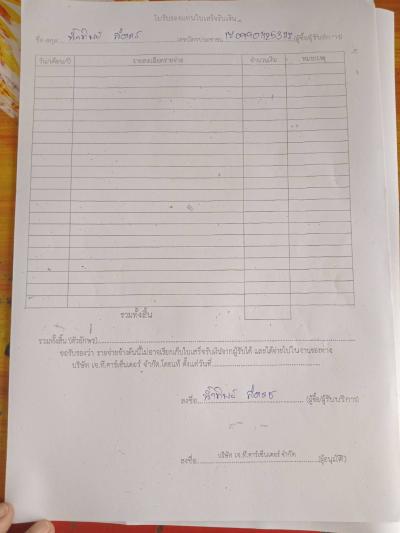 ใบรับรองแทนใบเสร็จรับเงิน
ชื่อ-สกุล เลขบัตรประชาชน (ผู้ซื้อ/ผู้รับบริการ)
วัน/เดือน/ปี รายละเอียดรายจ่าย จำนวนเงิน หมายเหตุ
รวมทั้งสิ้น
รวมทั้งสิ้น (ตัวอักษร)
ขอรับรองว่า รายจ่ายข้างต้นนี้ไม่อาจเรียกเก็บใบเสร็จรับเงินจากผู้รับได้ และได้จ่ายไปในงานของทาง
บริษัท เจ.ที.คาร์เซ็นเตอร์ จำกัด.โดยแท้ ตั้งแต่วันที่
ลงชื่อ (ผู้ซื้อ/ผู้รับบริการ)
ลงชื่อ บริษัท เจ.ที.คาร์เซ็นเตอร์ จำกัด (ผู้อนุมัติ)